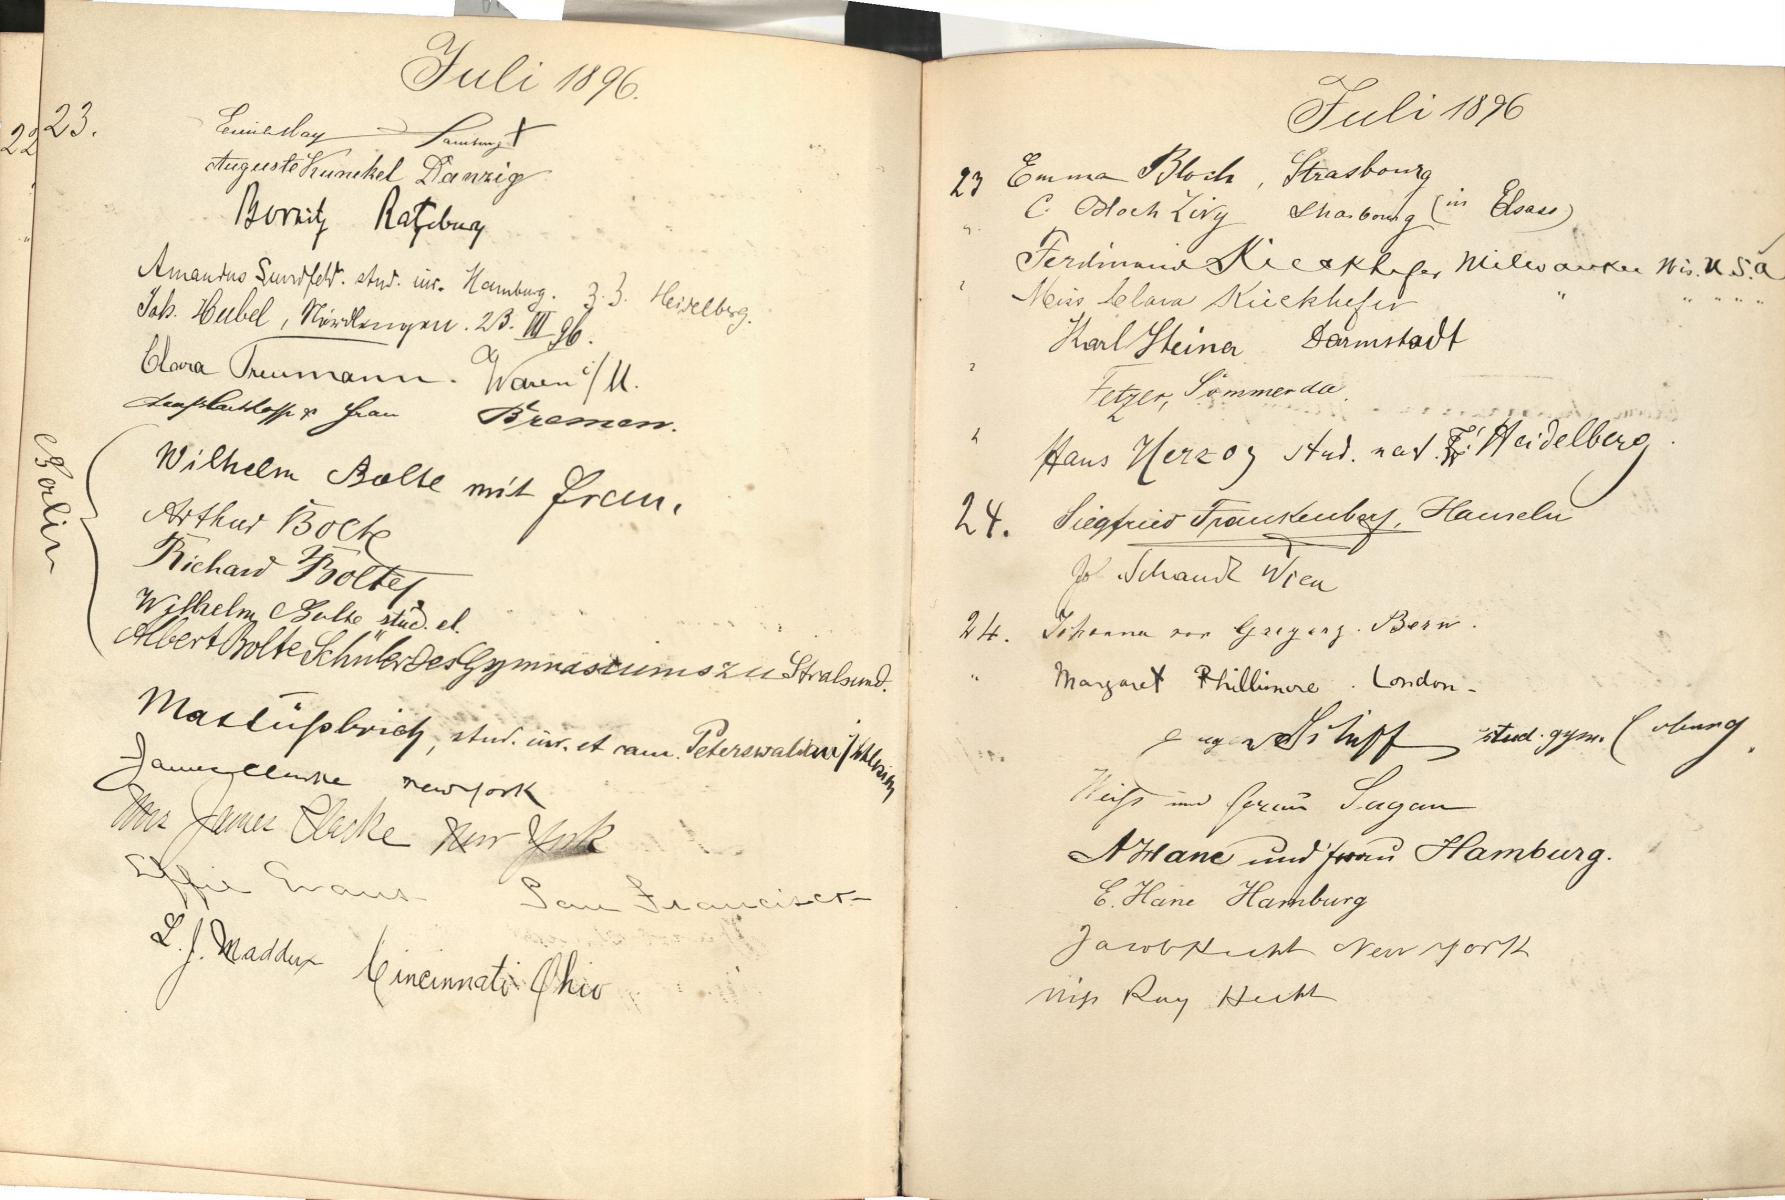 Juli 1896.
22
23.
Auguste Kunckel Danzig
Bornitz Ratzeburg
Amandus Sundfeld. stud. iur. Hamburg. z. Z. Heidelberg.
Joh. Hubel, Nördlingen. 23. VII 96.
Clara Treumann. Waren i/M.
& Frau Bremen.
Berlin
Wilhelm Bolte mit Frau.
Arthur Bolte
Richard Bolte
Wilhelm Bolte stud. el.
Albert Bolte Schüler des Gymnasiums zu Stralsund.
stud. iur. et cam. Peterswaldau i/Schlesien
James Clarke new york
Mrs James Clarke New York
Effie Evans San Francisco
L. J. Maddux Cincinnati Ohio
Juli 1896
23 Emma Bloch, Strasbourg
" C. Bloch Levy Strasbourg (in Elsass)
Ferdinand Kieckhefer Milwaukee Wis. U S. a
" Miss Clara Kieckhefer " " " " "
Karl Steiner Darmstadt
" Fetzer, Sömmerda.
" Hans Herzog stud. nat. Heidelberg.
24. Siegfried Frankenberg, Hameln
Jos. Schandl Wien
24. Johanna von Bern.
" Margaret Phillimore. London-
Eugen Schiff stud. gym. Coburg.
Weiss und Frau Sagan
A Hane und Frau Hamburg.
E. Hane Hamburg
Jacob Hecht New York
Miss Ray Hecht